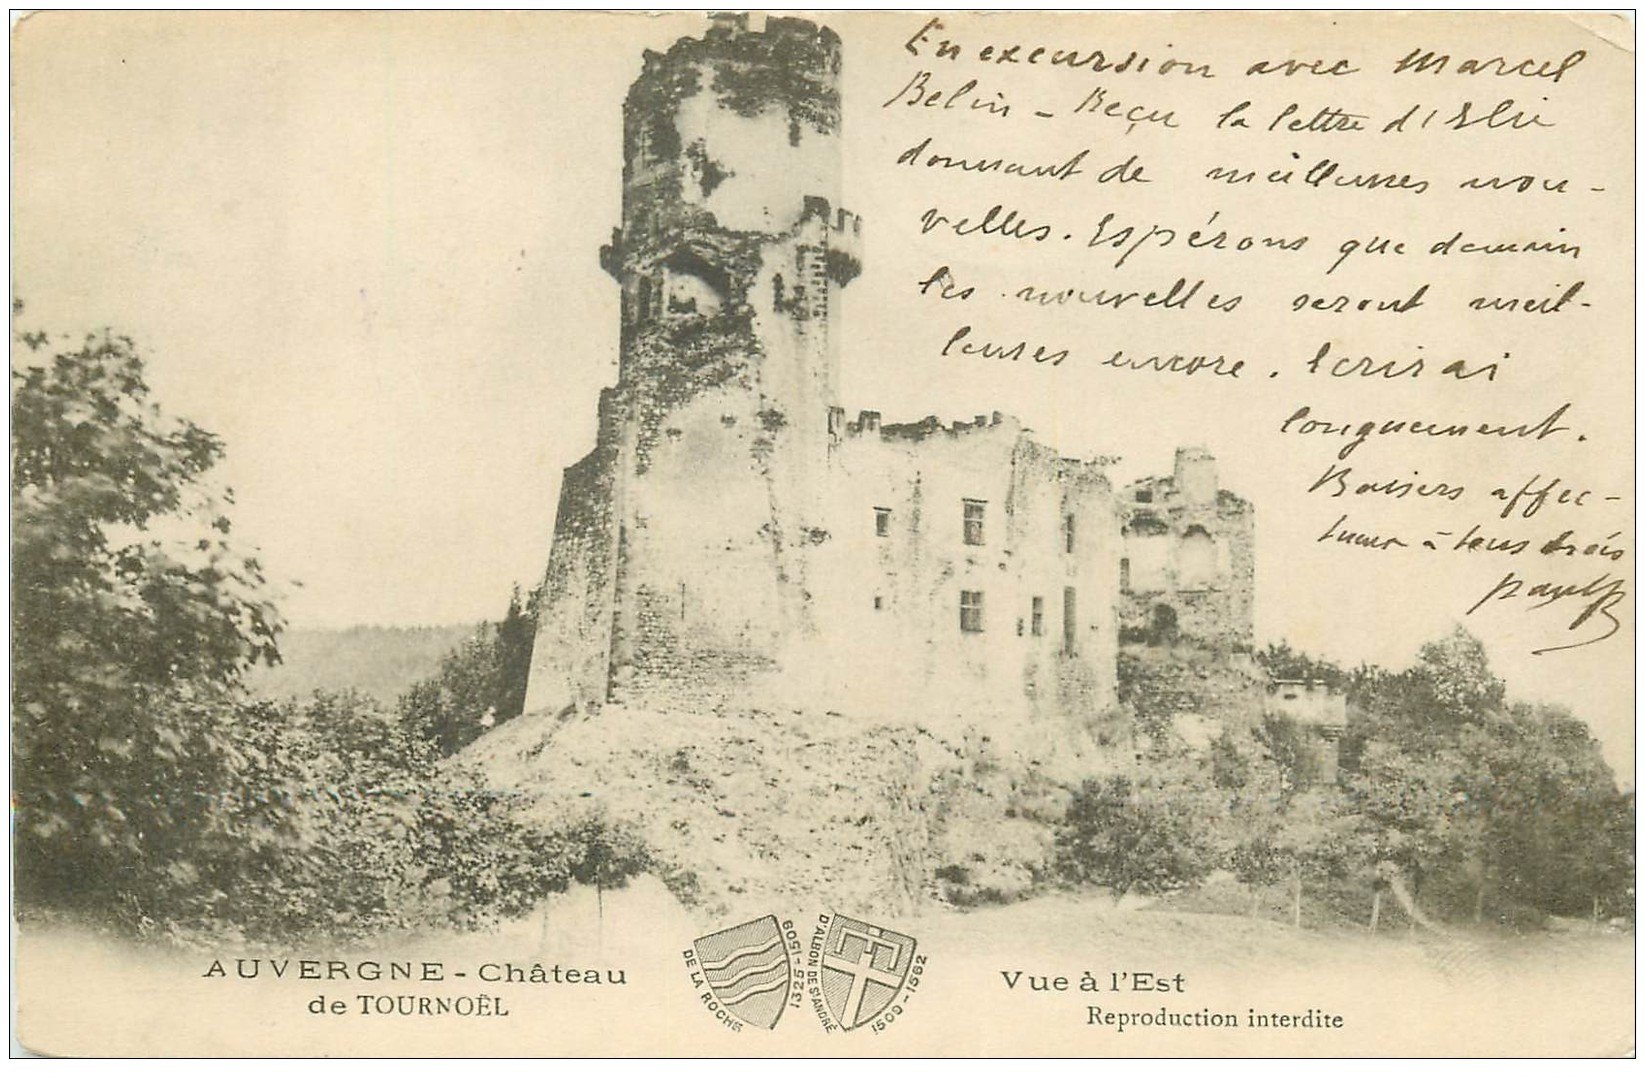 En excursion avec Marcel
Belin - Reçu la lettre d'Elie
donnant de meilleures nou-
velles. Espérons que demain
les nouvelles seront meil-
leures encore. Ecrirai
longuement.
Baisers affec-
tueux à tous trois
Paul B
AUVERGNE - Château
de TOURNOËL
DE LA ROCHE
1325-1509
D'ALBON DE ST ANDRÉ
1509-1562
Vue à l'Est
Reproduction interdite